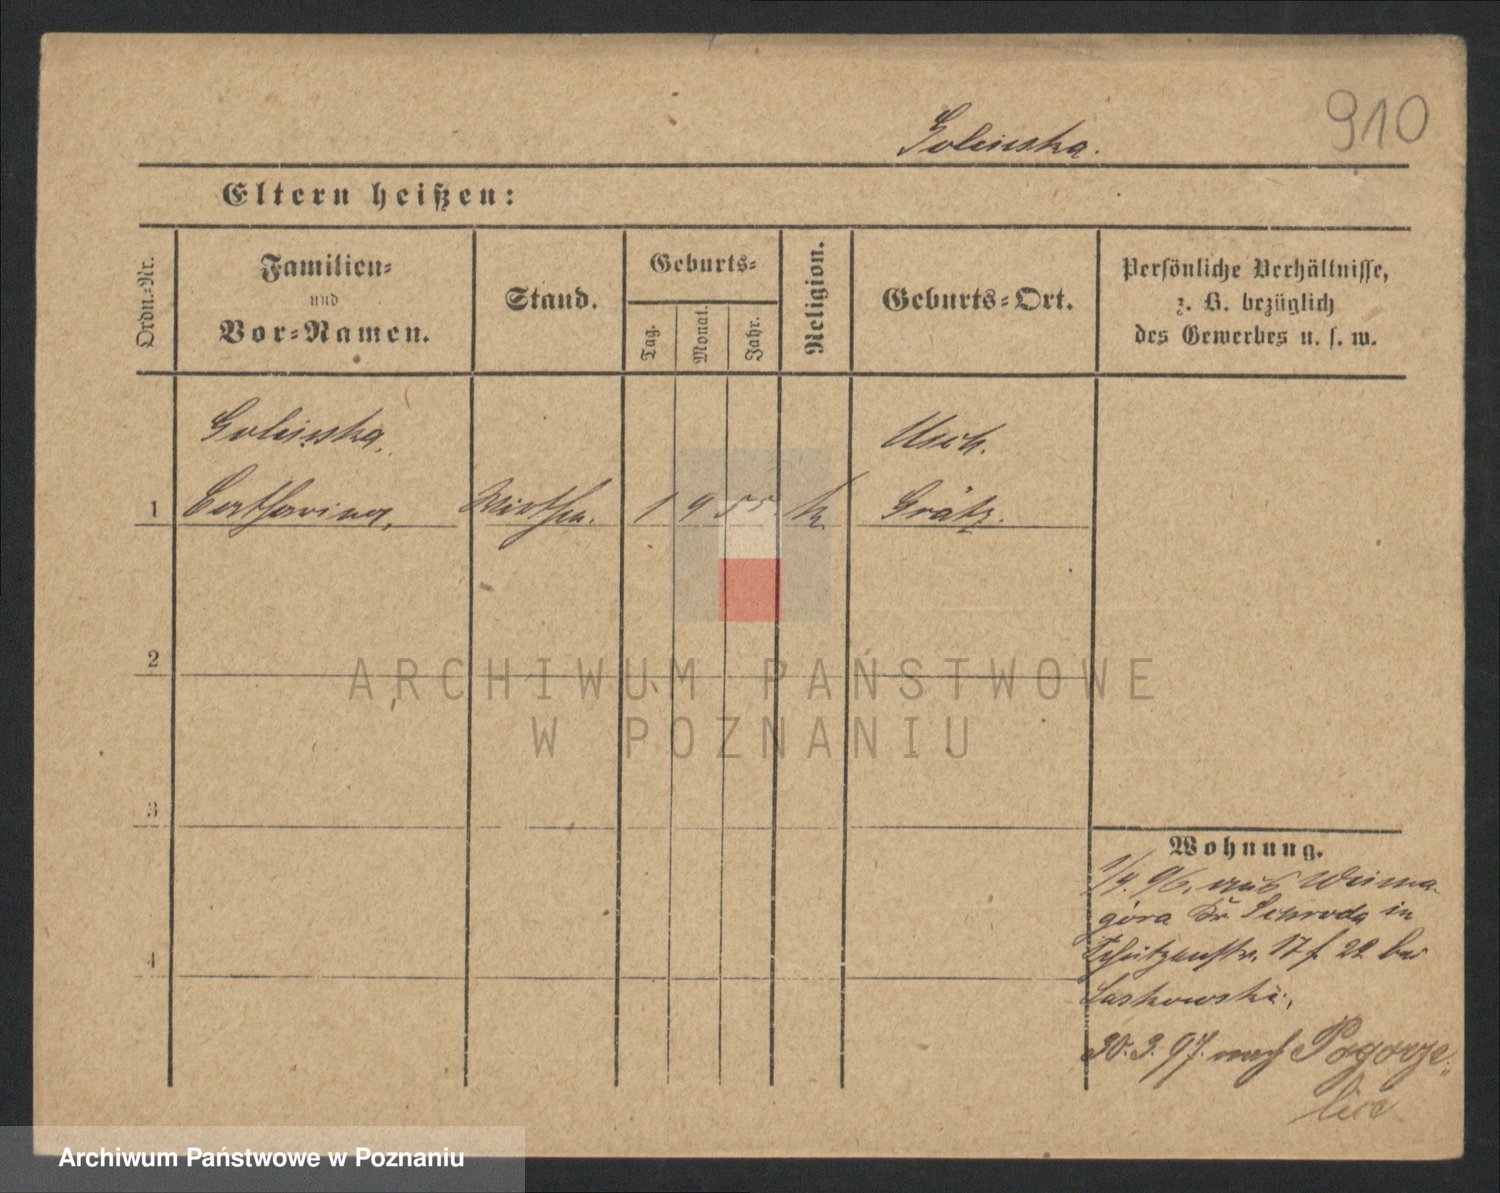 910
Golinska.
Eltern heißen:
Ordn.-Nr.
Familien-
und
Vor-Namen.
Stand.
Geburts-
Tag.
Monat.
Jahr.
Religion.
Geburts-Ort.
Persönliche Verhältnisse,
z. B. bezüglich
des Gewerbes u. s. w.
Golinska,
1 Catharina, Wirthin. 1 9 55. k.
Grätz.
2
3
4
Wohnung.
1/4. 96. aus
góra Kr. Schroda in
Schützenstr. 17 f. 22 bei
Laskowski,
30.3.97. nach Pogorze-
lice
ARCHIWUM PAŃSTWOWE
W POZNANIU
Archiwum Państwowe w Poznaniu